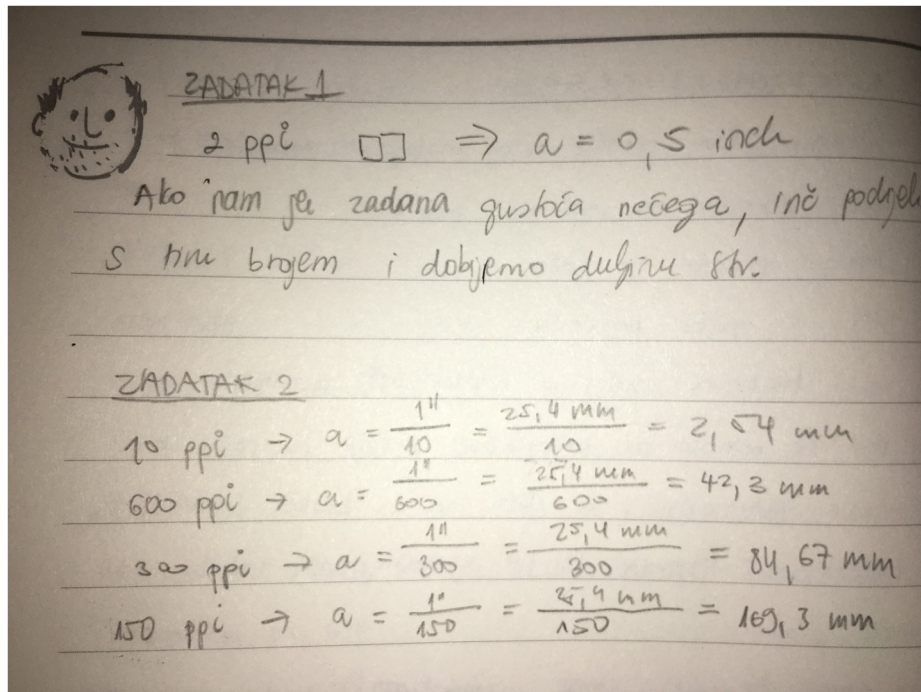 ZADATAK 1
2 ppi ⇒ a = 0,5 inch
Ako nam je zadana gustoća nečega, inč podijeli
s tim brojem i dobijemo duljinu str.
ZADATAK 2
10 ppi → a = 1"/10 = 25,4 mm/10 = 2,54 mm
600 ppi → a = 1"/600 = 25,4 mm/600 = 42,3 mm
300 ppi → a = 1"/300 = 25,4 mm/300 = 84,67 mm
150 ppi → a = 1"/150 = 25,4 mm/150 = 169,3 mm